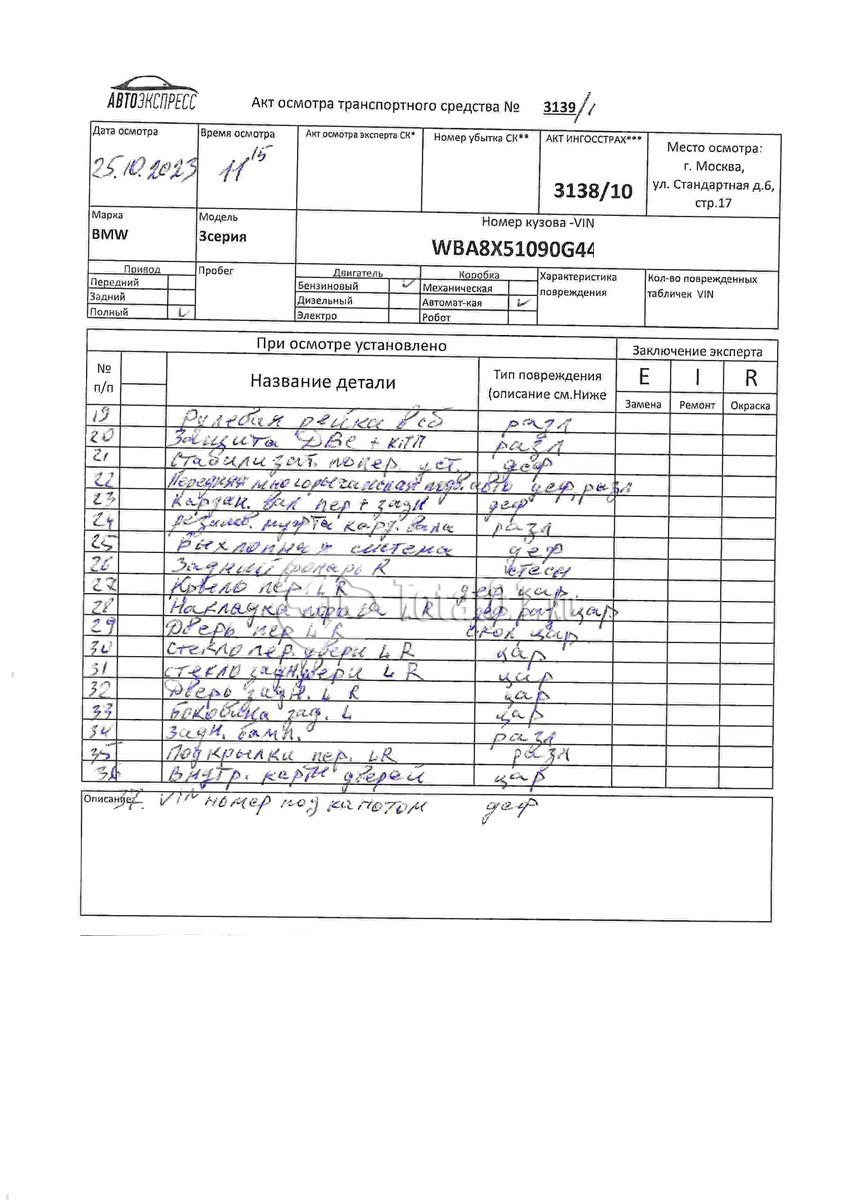 АВТОЭКСПРЕСС
Акт осмотра транспортного средства № 3139/1
Дата осмотра
25.10.2023
Время осмотра
11 15
Акт осмотра эксперта СК*
Номер убытка СК**
АКТ ИНГОССТРАХ***
3138/10
Место осмотра:
г. Москва,
ул. Стандартная д.6,
стр.17
Марка
BMW
Модель
3серия
Номер кузова -VIN
WBA8X51090G44
Привод
Передний
Задний
Полный
Пробег
Двигатель
Бензиновый
Дизельный
Электро
Коробка
Механическая
Автомат-кая
Робот
Характеристика
повреждения
Кол-во поврежденных
табличек VIN
При осмотре установлено
Заключение эксперта
№
п/п
Название детали
Тип повреждения
(описание см.Ниже
E I R
Замена Ремонт Окраска
19 Рулевая рейка в сб разл
20 Защита ДВС + КПП разл
21 Стабилизат. попер. уст. деф
22 Передняя многорычажная подв. авто деф, разл
23 Кардан. вал пер + задн деф
24 резинов. муфта кард. вала разл
25 Выхлопная система деф
26 Задний фонарь R
27 Крыло пер. L R деф цар.
28 Накладка порога L R деф. раз. цар
29 Дверь пер L R скол, цар
30 Стекло пер. двери L R цар
31 стекло задн. двери L R цар
32 Дверь задн. L R цар
33 Боковина зад. L цар
34 Задн. бамп. разл
35 Подкрылки пер. LR разл
36 Внутр. карты дверей цар
Описание:
37. VIN номер под капотом деф